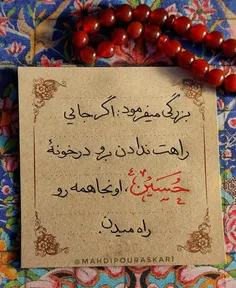 بزرگی میفرمود: اگر جایی
راهت ندادن برو در خونهٔ
حسین، اونجا همه رو
راه میدن
@MAHDIPOURASKARI